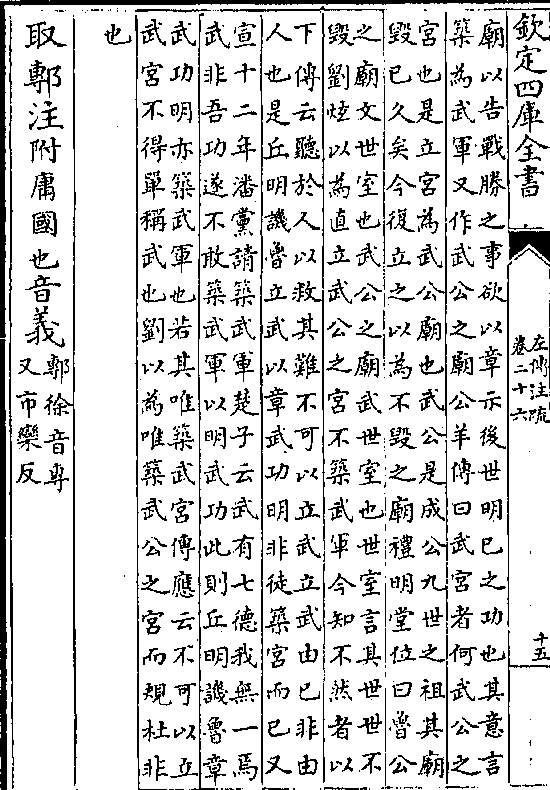 欽定四庫全書
左傳注疏
卷二十六
十五
廟以告戰勝之事欲以章示後世明已之功也其意言
築為武軍又作武公之廟公羊傳曰武宮者何武公之
宮也是立宮為武公廟也武公是成公九世之祖其廟
毀已久矣今復立之以為不毀之廟禮明堂位曰魯公
之廟文世室也武公之廟武世室也世室言其世世不
毀劉炫以為直立武公之宮不築武軍今知不然者以
下傳云聽於人以救其難不可以立武立武由已非由
人也是丘明譏魯立武以章武功明非徒築宮而已又
宣十二年潘黨請築武軍楚子云武有七德我無一焉
武非吾功遂不敢築武軍以明武功此則丘明譏魯章
武功明亦築武軍也若其唯築武宮傳應云不可以立
武宮不得單稱武也劉以為唯築武公之宮而規杜非
也
取鄟注附庸國也音義鄟徐音專
又市臠反